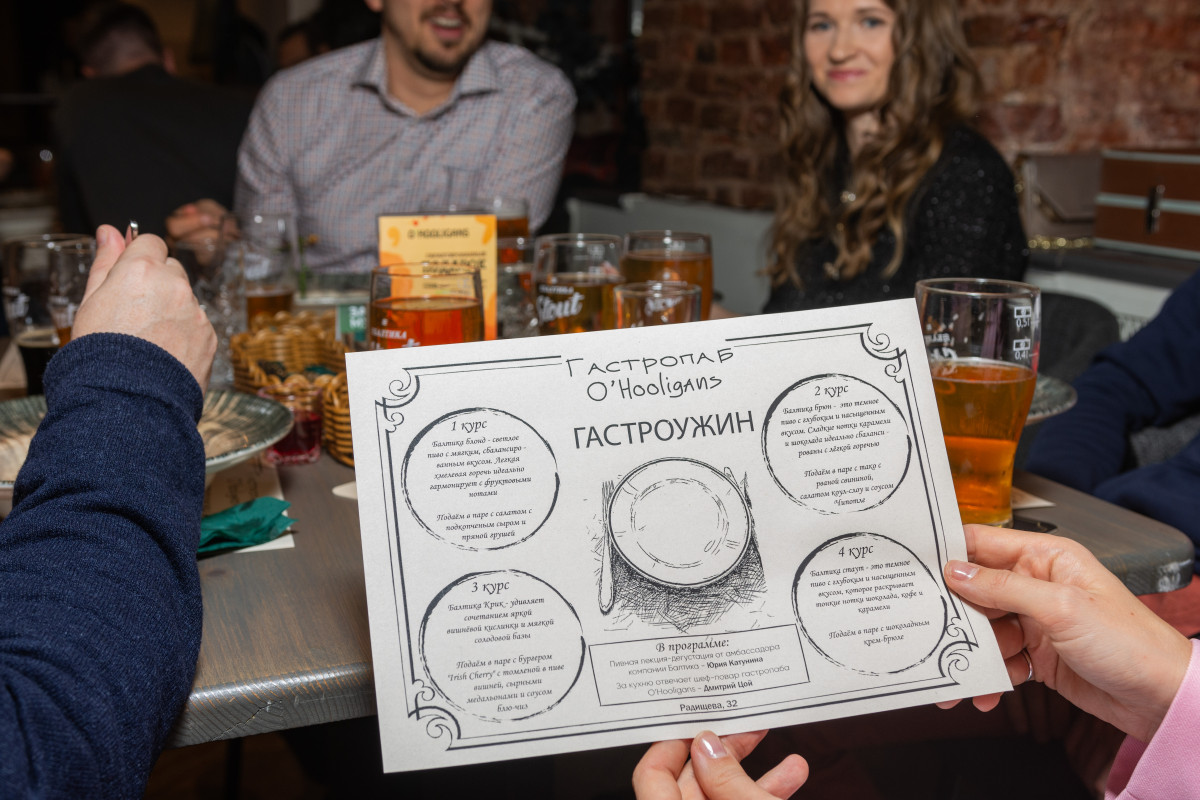 O HOOLIGANS
Stout
БАЛТИКА
0,5л
0,4л
Гастропаб
O'Hooligans
ГАСТРОУЖИН
1 курс
Балтика блонд - светлое
пиво с мягким, сбалансиро-
ванным вкусом. Легкая
хмелевая горечь идеально
гармонирует с фруктовыми
нотами
Подаём в паре с салатом с
подкопченым сыром и
пряной грушей
2 курс
Балтика брюн - это темное
пиво с глубоким и насыщенным
вкусом. Сладкие нотки карамели
и шоколада идеально сбаланси-
рованы с лёгкой горечью
Подаём в паре с тако с
рваной свининой,
салатом коул-слау и соусом
Чипотле
3 курс
Балтика Крик - удивляет
сочетанием яркой
вишнёвой кислинки и мягкой
солодовой базы
Подаём в паре с бургером
"Irish Cherry" с томленой в пиве
вишней, сырными
медальонами и соусом
блю-чиз
4 курс
Балтика стаут - это темное
пиво с глубоким и насыщенным
вкусом, которое раскрывает
тонкие нотки шоколада, кофе и
карамели
Подаём в паре с шоколадным
крем-брюле
В программе:
Пивная лекция-дегустация от амбассадора
компании Балтика - Юрия Катунина
За кухню отвечает шеф-повар гастропаба
O'Hooligans - Дмитрий Цой
Радищева, 32